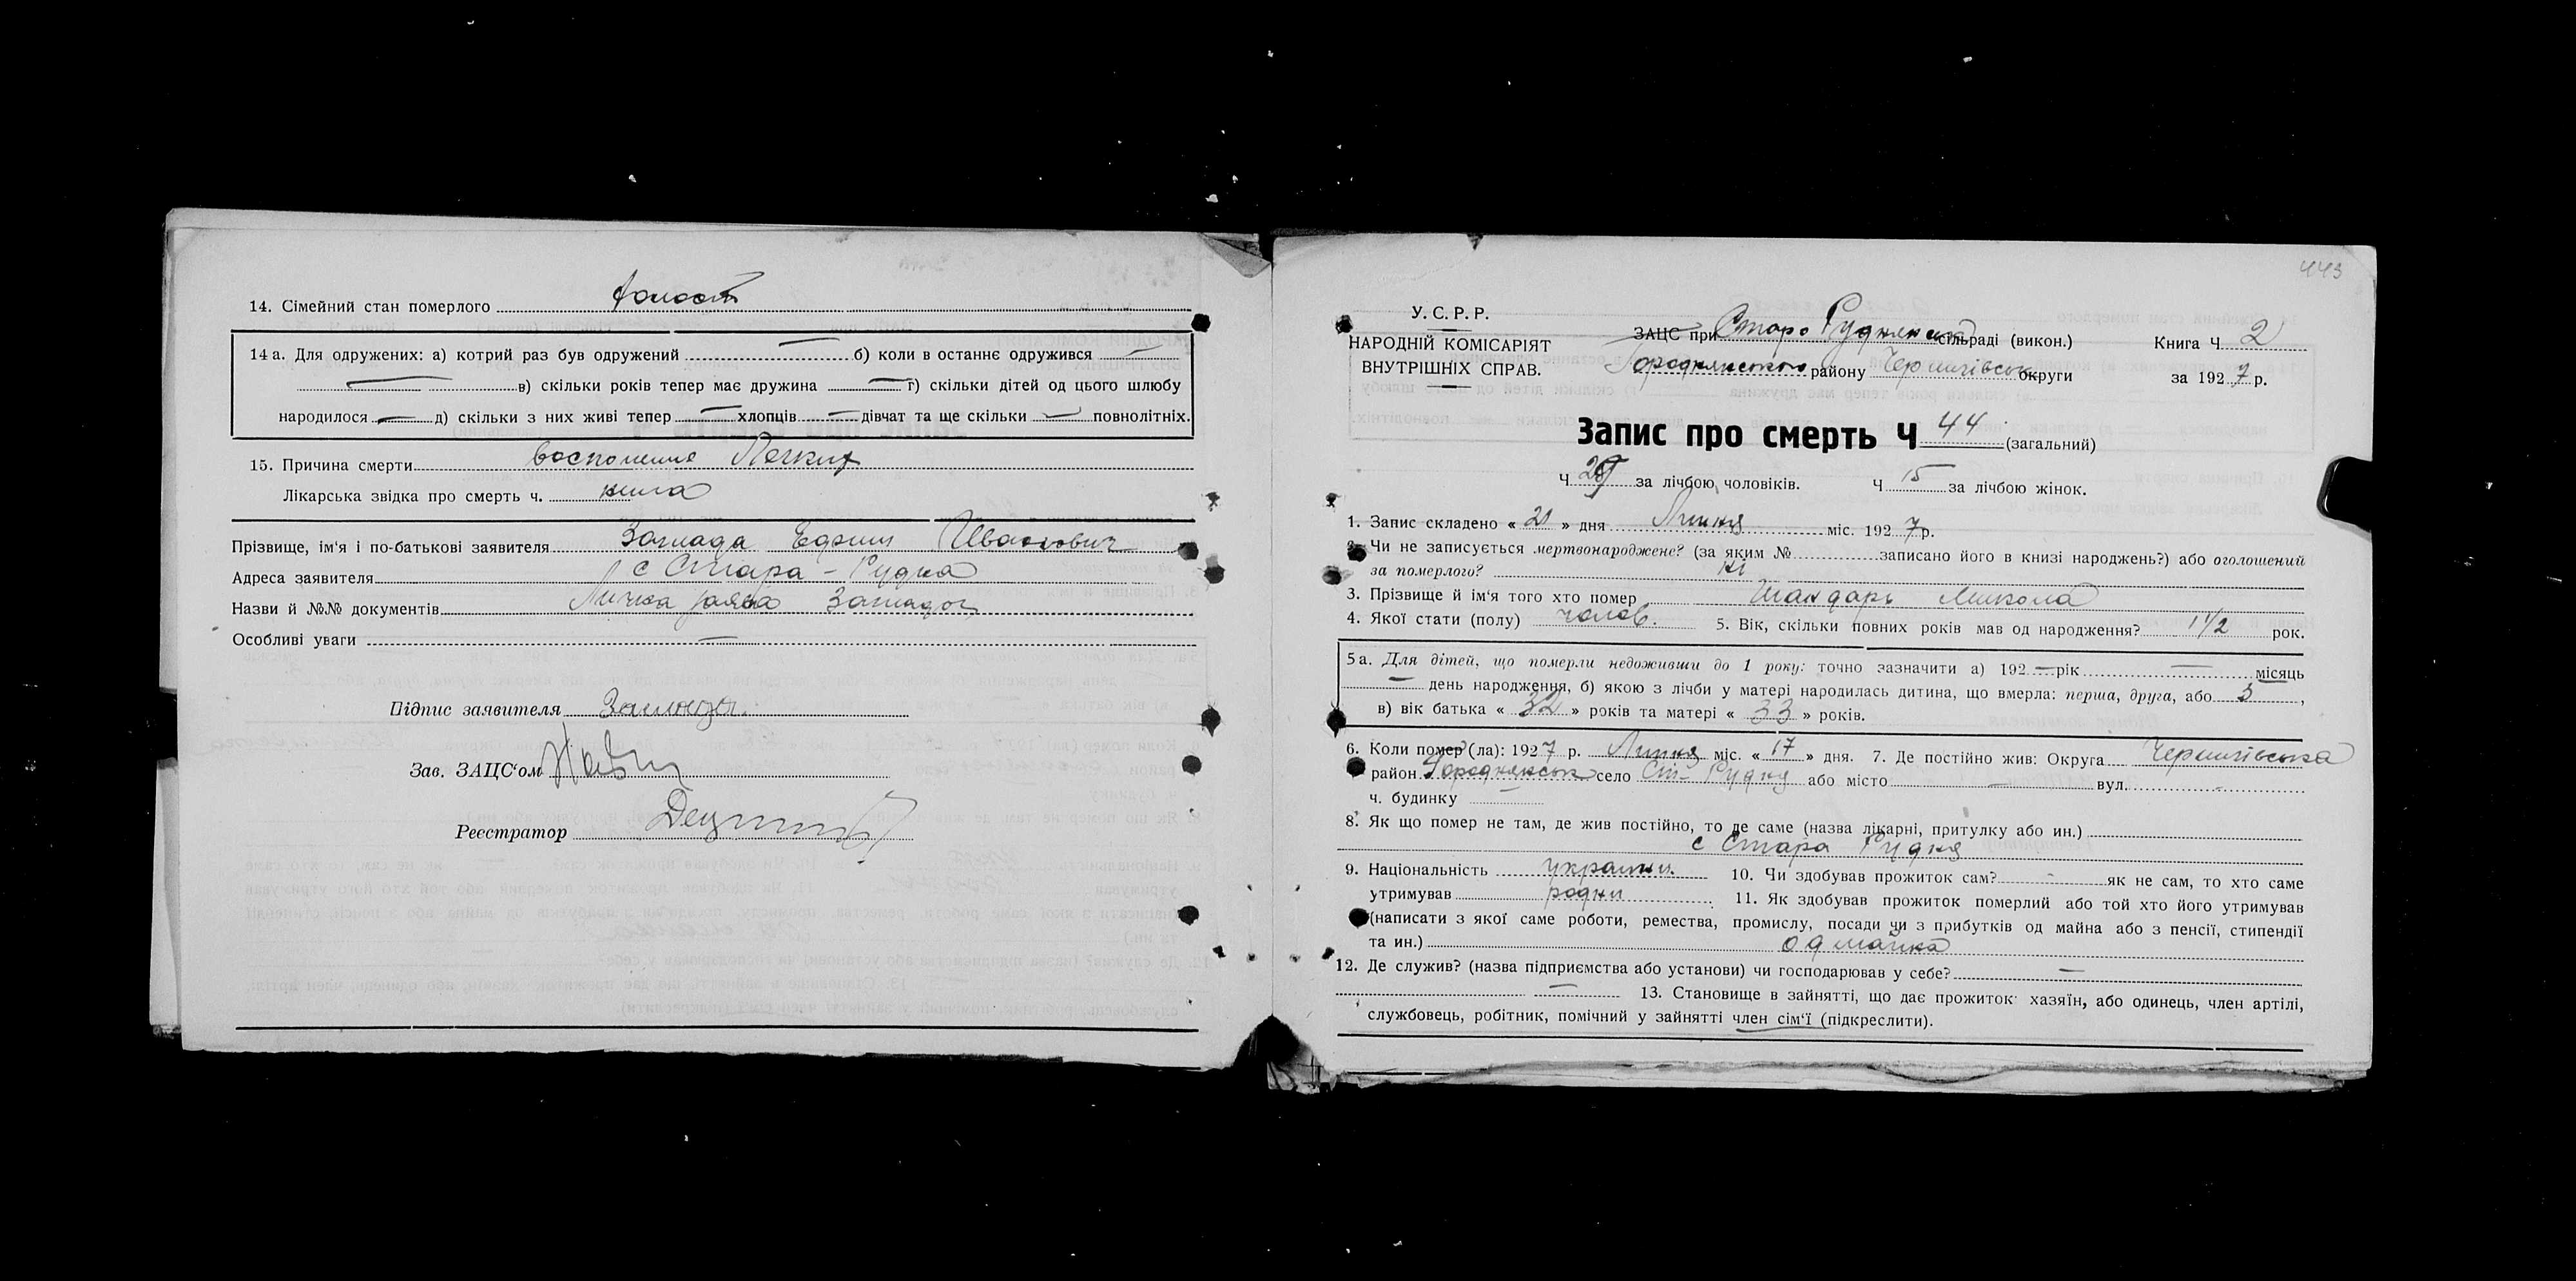 14. Сімейний стан померлого холост
14 а. Для одружених: а) котрий раз був одружений — б) коли в останнє одружився —
— в) скільки років тепер має дружина — г) скільки дітей од цього шлюбу
народилося — д) скільки з них живі тепер — хлопців — дівчат та ще скільки — повнолітніх.
15. Причина смерти воспоління Легких
Лікарська звідка про смерть ч. нима
Прізвище, ім'я і по-батькові заявителя Ефрим Иванович
Адреса заявителя с Стара-Рудня
Назви й №№ документів Лична заява
Особливі уваги —
Підпис заявителя
Зав. ЗАЦС'ом
Реєстратор
443
У. С. Р. Р.
НАРОДНІЙ КОМІСАРІЯТ
ВНУТРІШНІХ СПРАВ.
ЗАЦС при Старо Руднянській сільраді (викон.)
Городнянського району Чернигівськ округи
Книга Ч 2
за 1927 р.
Запис про смерть Ч 44 (загальний)
Ч 29 за лічбою чоловіків. Ч 15 за лічбою жінок.
1. Запис складено « 21 » дня Липня міс. 1927 р.
2. Чи не записується мертвонароджене? (за яким № записано його в книзі народжень?) або оголошений
за померлого? ні
3. Прізвище й ім'я того хто помер Шандарь Микола
4. Якої стати (полу) чолов. 5. Вік, скільки повних років мав од народження? 1 1/2 рок.
5 а. Для дітей, що померли недоживши до 1 року: точно зазначити а) 192 — рік — місяць
— день народження, б) якою з лічби у матері народилась дитина, що вмерла: перша, друга, або 3,
в) вік батька « 32 » років та матері « 33 » років.
6. Коли помер (ла): 1927 р. Липня міс. « 17 » дня. 7. Де постійно жив: Округа Чернигівська
район Городнянськ село Ст-Рудня або місто — вул. -
ч. будинку —
8. Як що помер не там, де жив постійно, то де саме (назва лікарні, притулку або ин.)
с Стара Рудня
9. Національність украин. 10. Чи здобував прожиток сам? - як не сам, то хто саме
утримував родни 11. Як здобував прожиток померлий або той хто його утримував
(написати з якої саме роботи, ремества, промислу, посади чи з прибутків од майна або з пенсії, стипендії
та ин.) од майна
12. Де служив? (назва підприємства або установи) чи господарював у себе? —
— 13. Становище в зайнятті, що дає прожиток: хазяїн, або одинець, член артілі,
службовець, робітник, помічний у зайнятті член сім'ї (підкреслити).